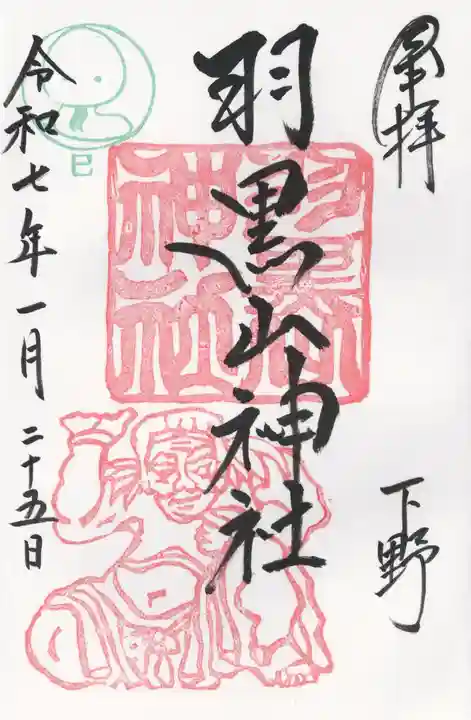 奉拝
下野
羽黒山神社
令和七年一月二十五日
巳